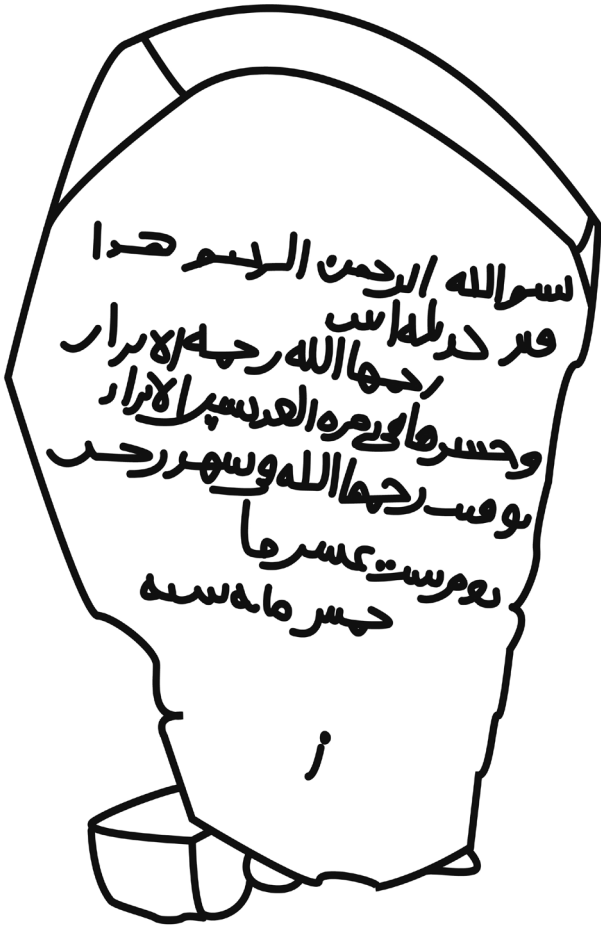 بسم الله الرحمن الرحيم هذا
قبر خديجه ابنت
رحمها الله رحمه الابرار
وحشرها في زمره القديسين الابرار
توفيت رحمها الله في شهر رجب
يوم ست عشر ما
خمس مايه سنه